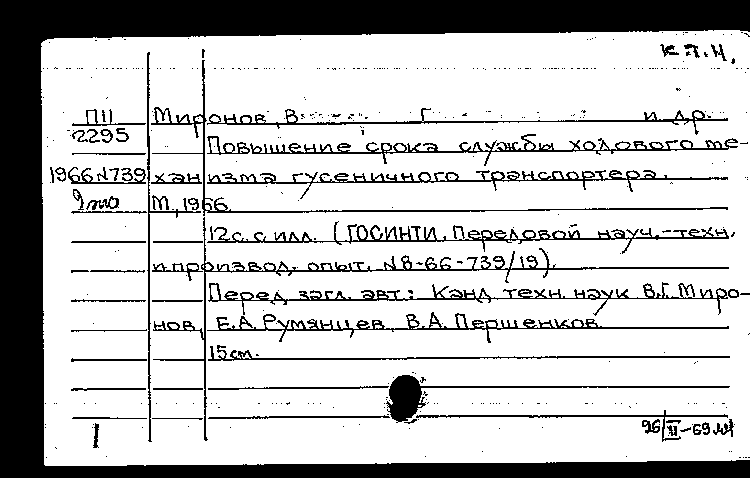 К.Т.Н.
П11 Миронов, В Г и др.
2295 Повышение срока службы ходового ме-
1966 N739 ханизма гусеничного транспортера.
М., 1966.
12с. с илл. (ГОСИНТИ. Передовой науч.-техн.
и производ. опыт. N 8-66-739/19).
Перед загл. авт.: Канд. техн. наук В.Г. Миро-
нов, Е.А. Румянцев, В.А. Першенков.
15см.
1